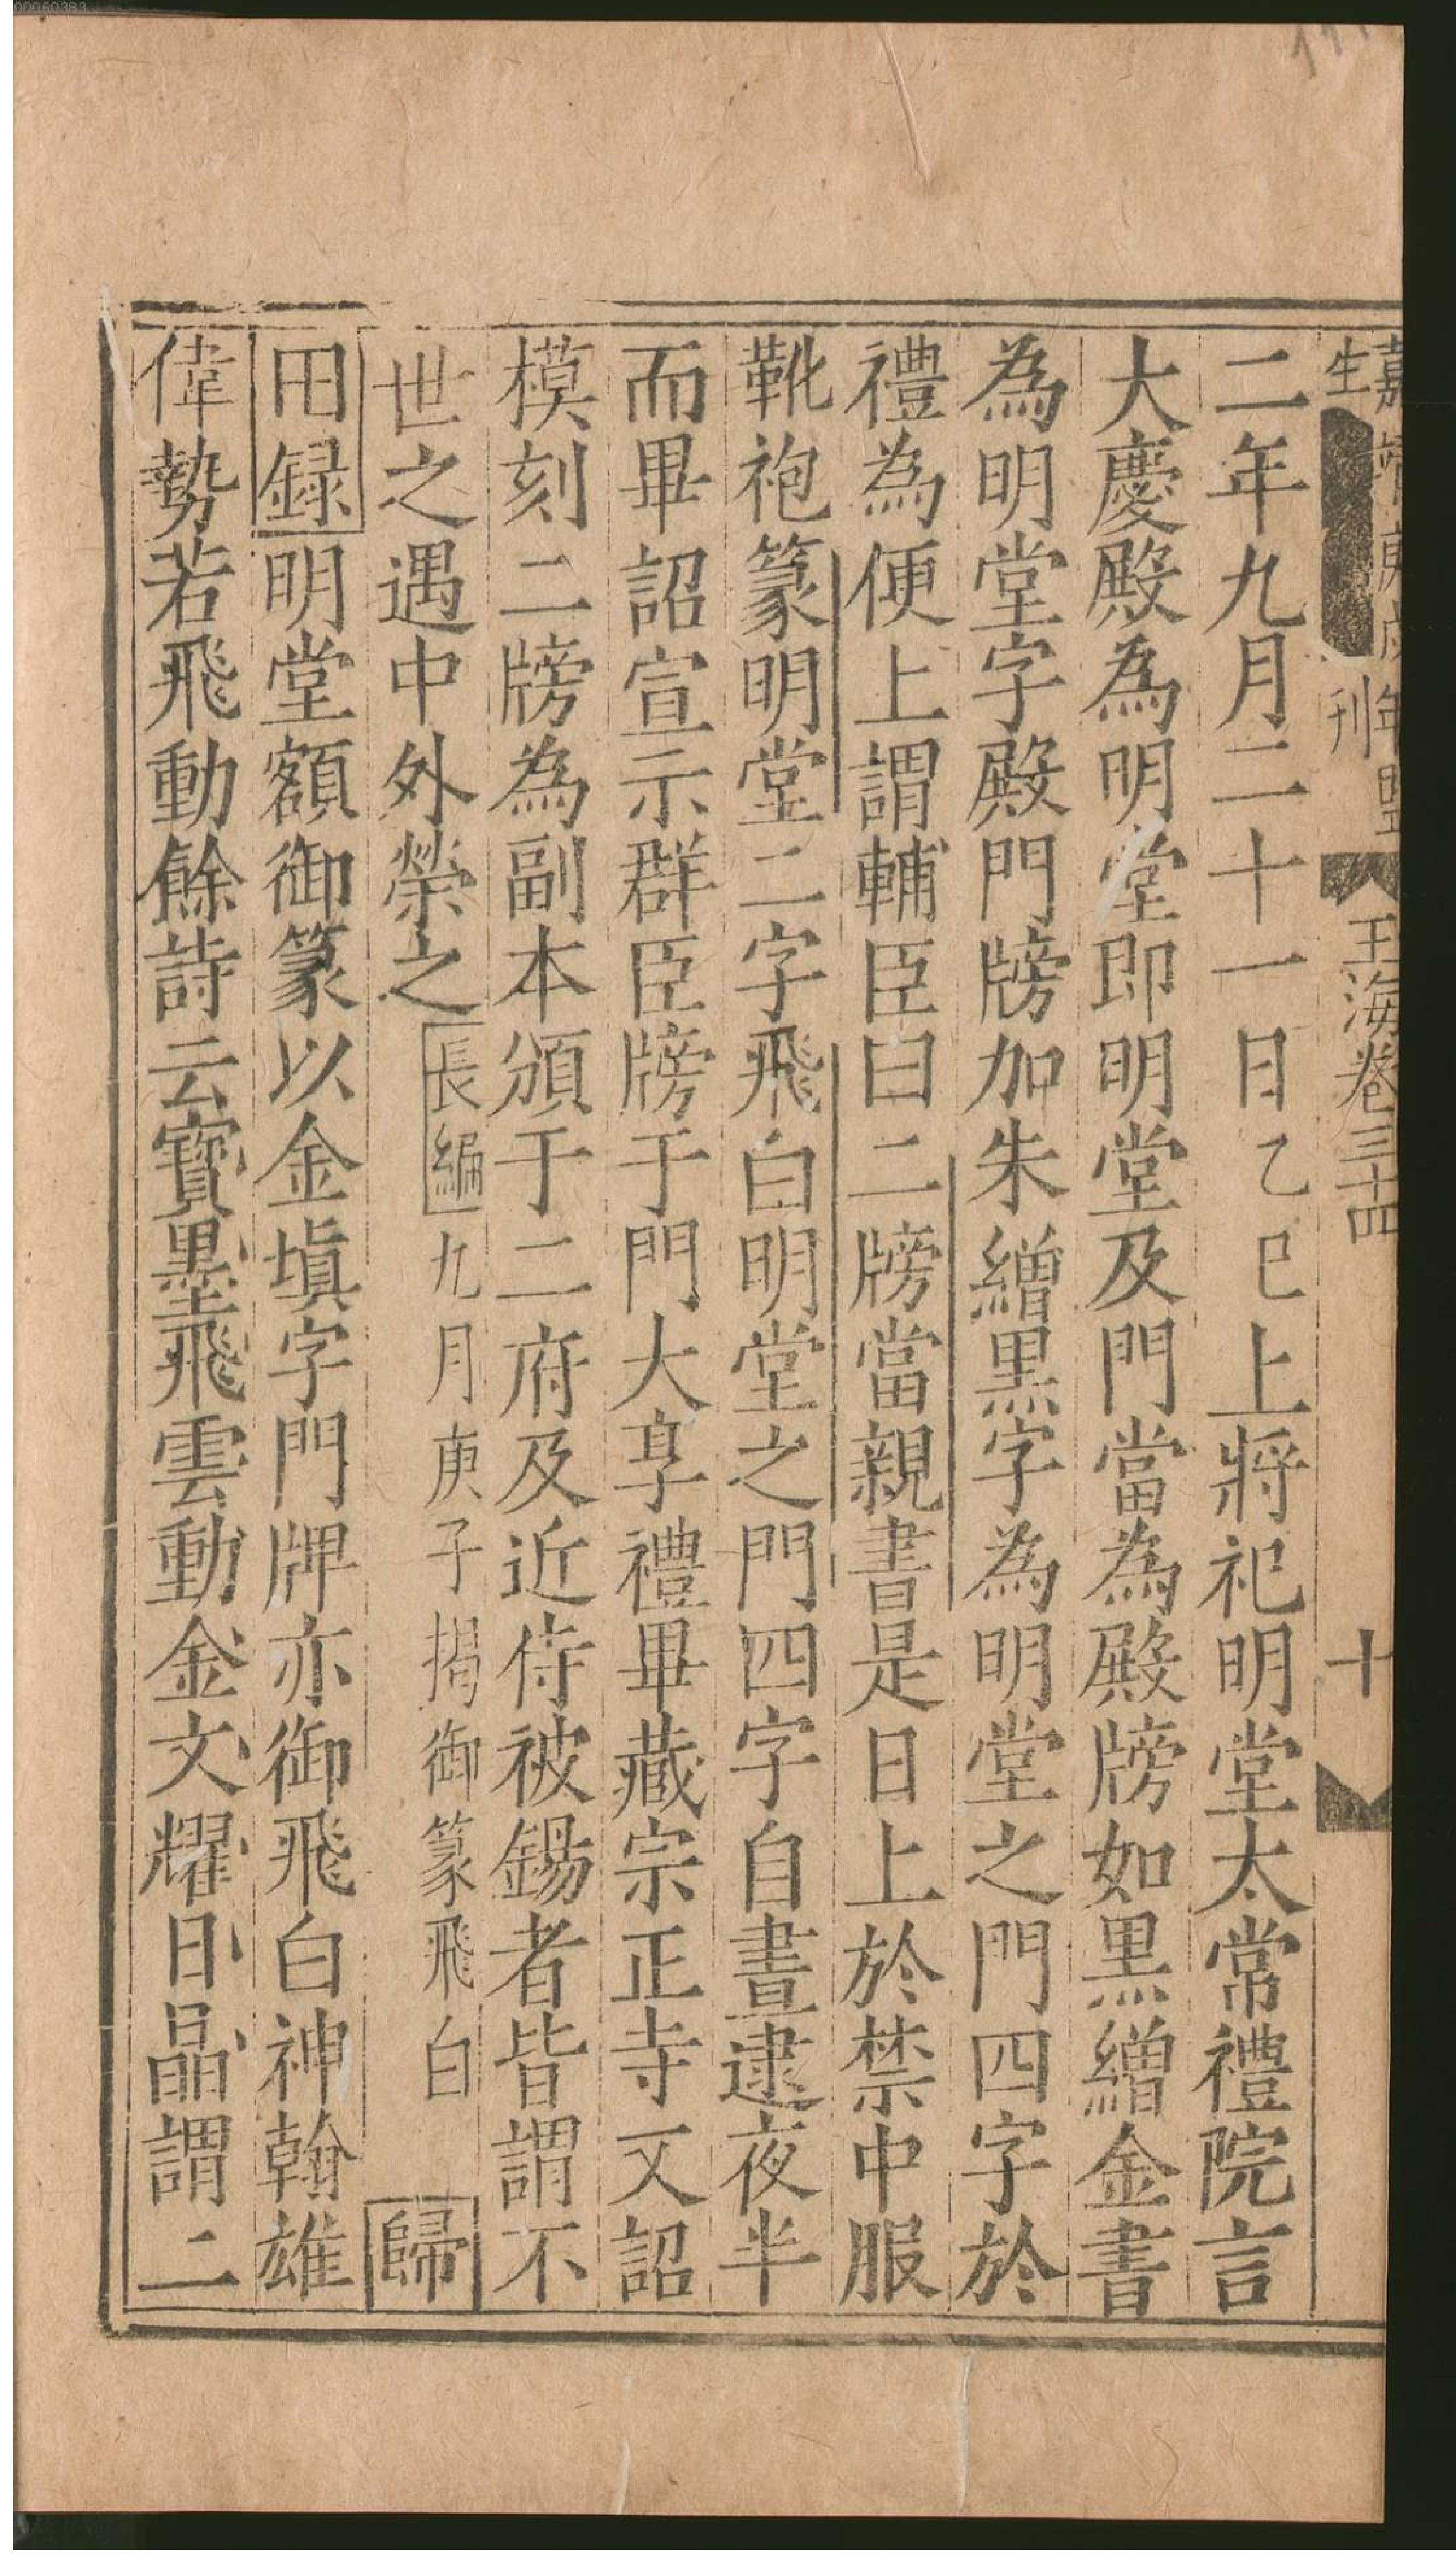 嘉靖庚戌年
生
刊
玉海卷三十四
十
二年九月二十一日乙巳上將祀明堂太常禮院言
大慶殿為明堂即明堂及門當為殿牓如黑繒金書
為明堂字殿門牓加朱繒黑字為明堂之門四字於
禮為便上謂輔臣曰二牓當親書是日上於禁中服
靴袍篆明堂二字飛白明堂之門四字自晝逮夜半
而畢詔宣示群臣牓于門大享禮畢藏宗正寺又詔
模刻二牓為副本頒于二府及近侍被錫者皆謂不
世之遇中外榮之長編九月庚子揭御篆飛白歸
田録明堂額御篆以金塡字門牌亦御飛白神翰雄
偉勢若飛動餘詩云寶墨飛雲動金文耀日晶謂二
00060383